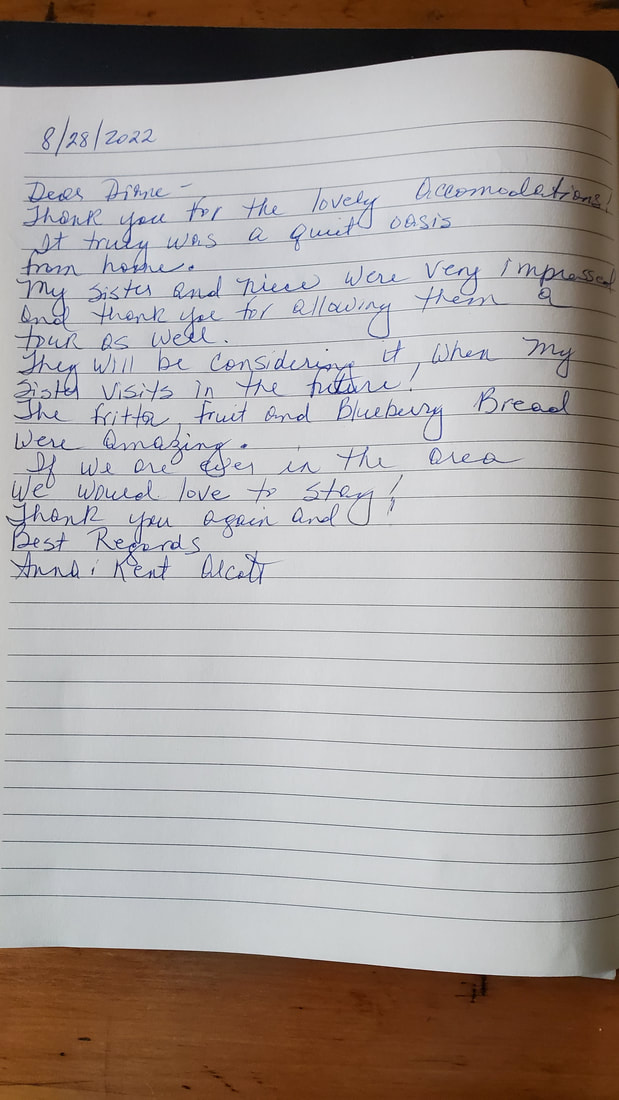 8/28/2022
Dear Diane -
Thank you for the lovely Accomodations!
It truly was a quiet oasis
from home.
My sister and niece were very impressed
and thank you for allowing them a
tour as well.
They will be considering it, when my
sister visits in the future!
The fritta, fruit and Blueberry Bread
were amazing.
If we are ever in the area
We would love to stay!
Thank you again and
Best Regards
Anna & Kent Alcott